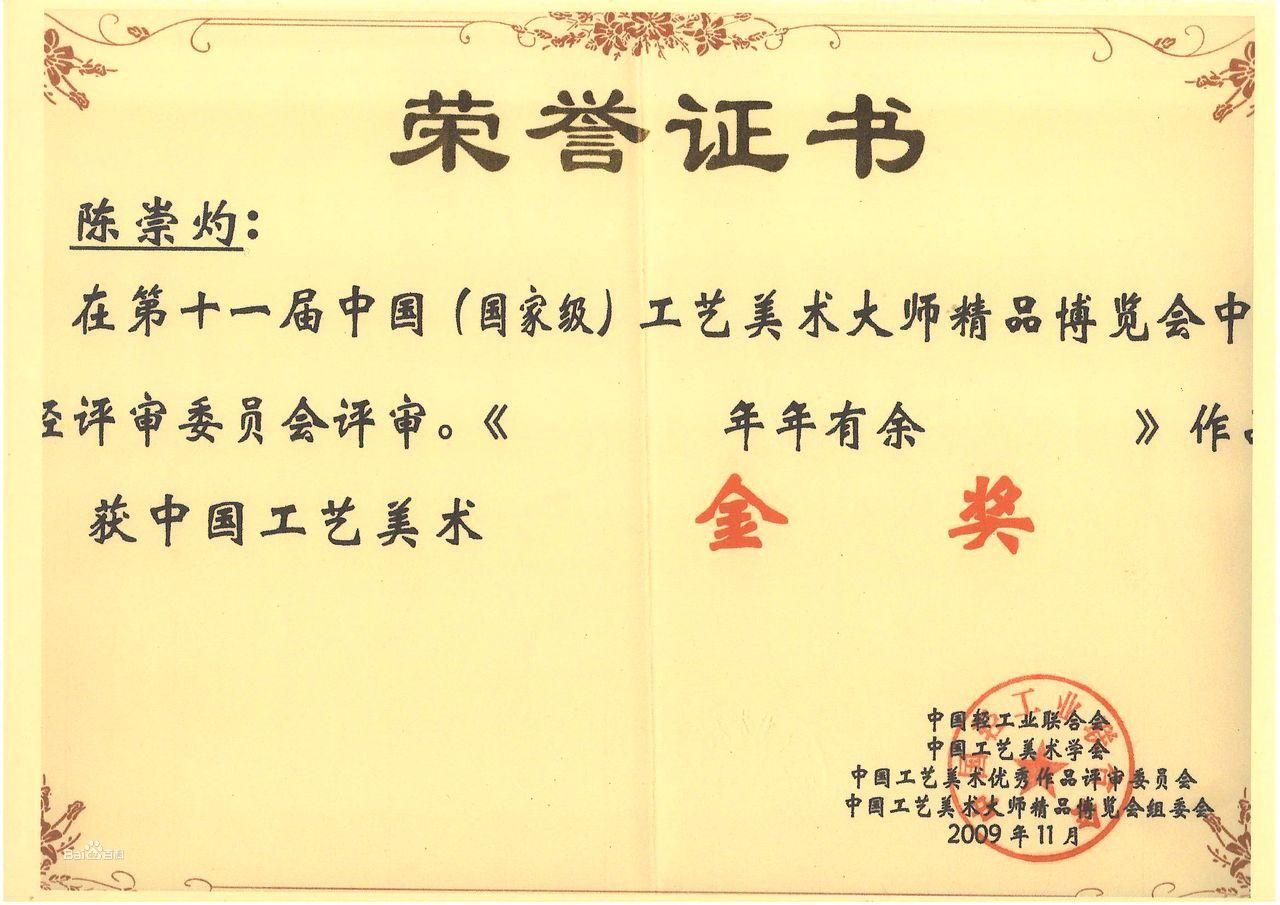 荣誉证书
陈崇灼：
在第十一届中国（国家级）工艺美术大师精品博览会中
经评审委员会评审。《 年年有余 》作品
获中国工艺美术 金 奖
中国轻工业联合会
中国工艺美术学会
中国工艺美术优秀作品评审委员会
中国工艺美术大师精品博览会组委会
2009年11月
中国轻工业联合会
Baidu百科